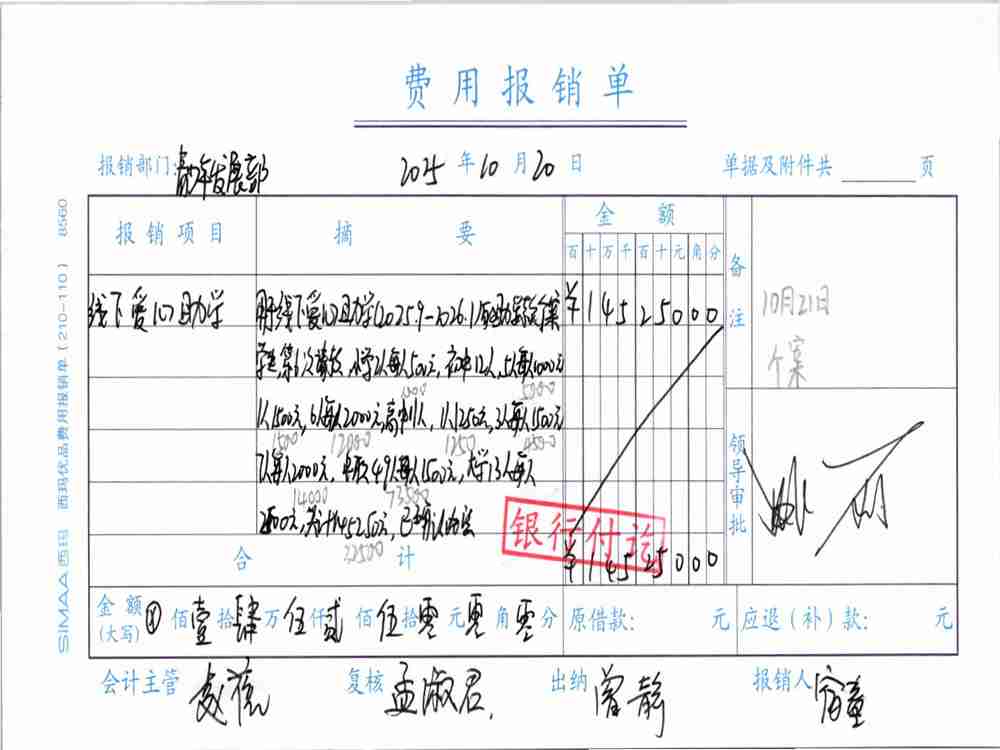 费用报销单
报销部门: 发展部 2025 年 10 月 20 日 单据及附件共 页
报销项目 摘要 金额 备注
百 十 万 千 百 十 元 角 分
线下爱心助学 用于线下爱心助学(2025.9-2026.1) ¥14525000
10月21日
个案
小学2人每人500元,初中12人,5人每人1000元
1000 5000
1人1500元,6人每人2000元,高中11人,1人1250元,3人每人1500元
1500 12000 1250 4500
7人每人2000元,49人每人1500元,大学13人每人
14000 73500
2500元,共计145250元,已
32500
领导审批
银行付讫
合计 ¥14525000
金额(大写) ⊗ 佰 壹 拾 肆 万 伍 仟 贰 佰 伍 拾 零 元 零 角 零 分 原借款: 元 应退(补)款: 元
会计主管 复核 孟淑君 出纳 曾静 报销人
SIMAA 西玛 西玛优品费用报销单(210-110) 8S60